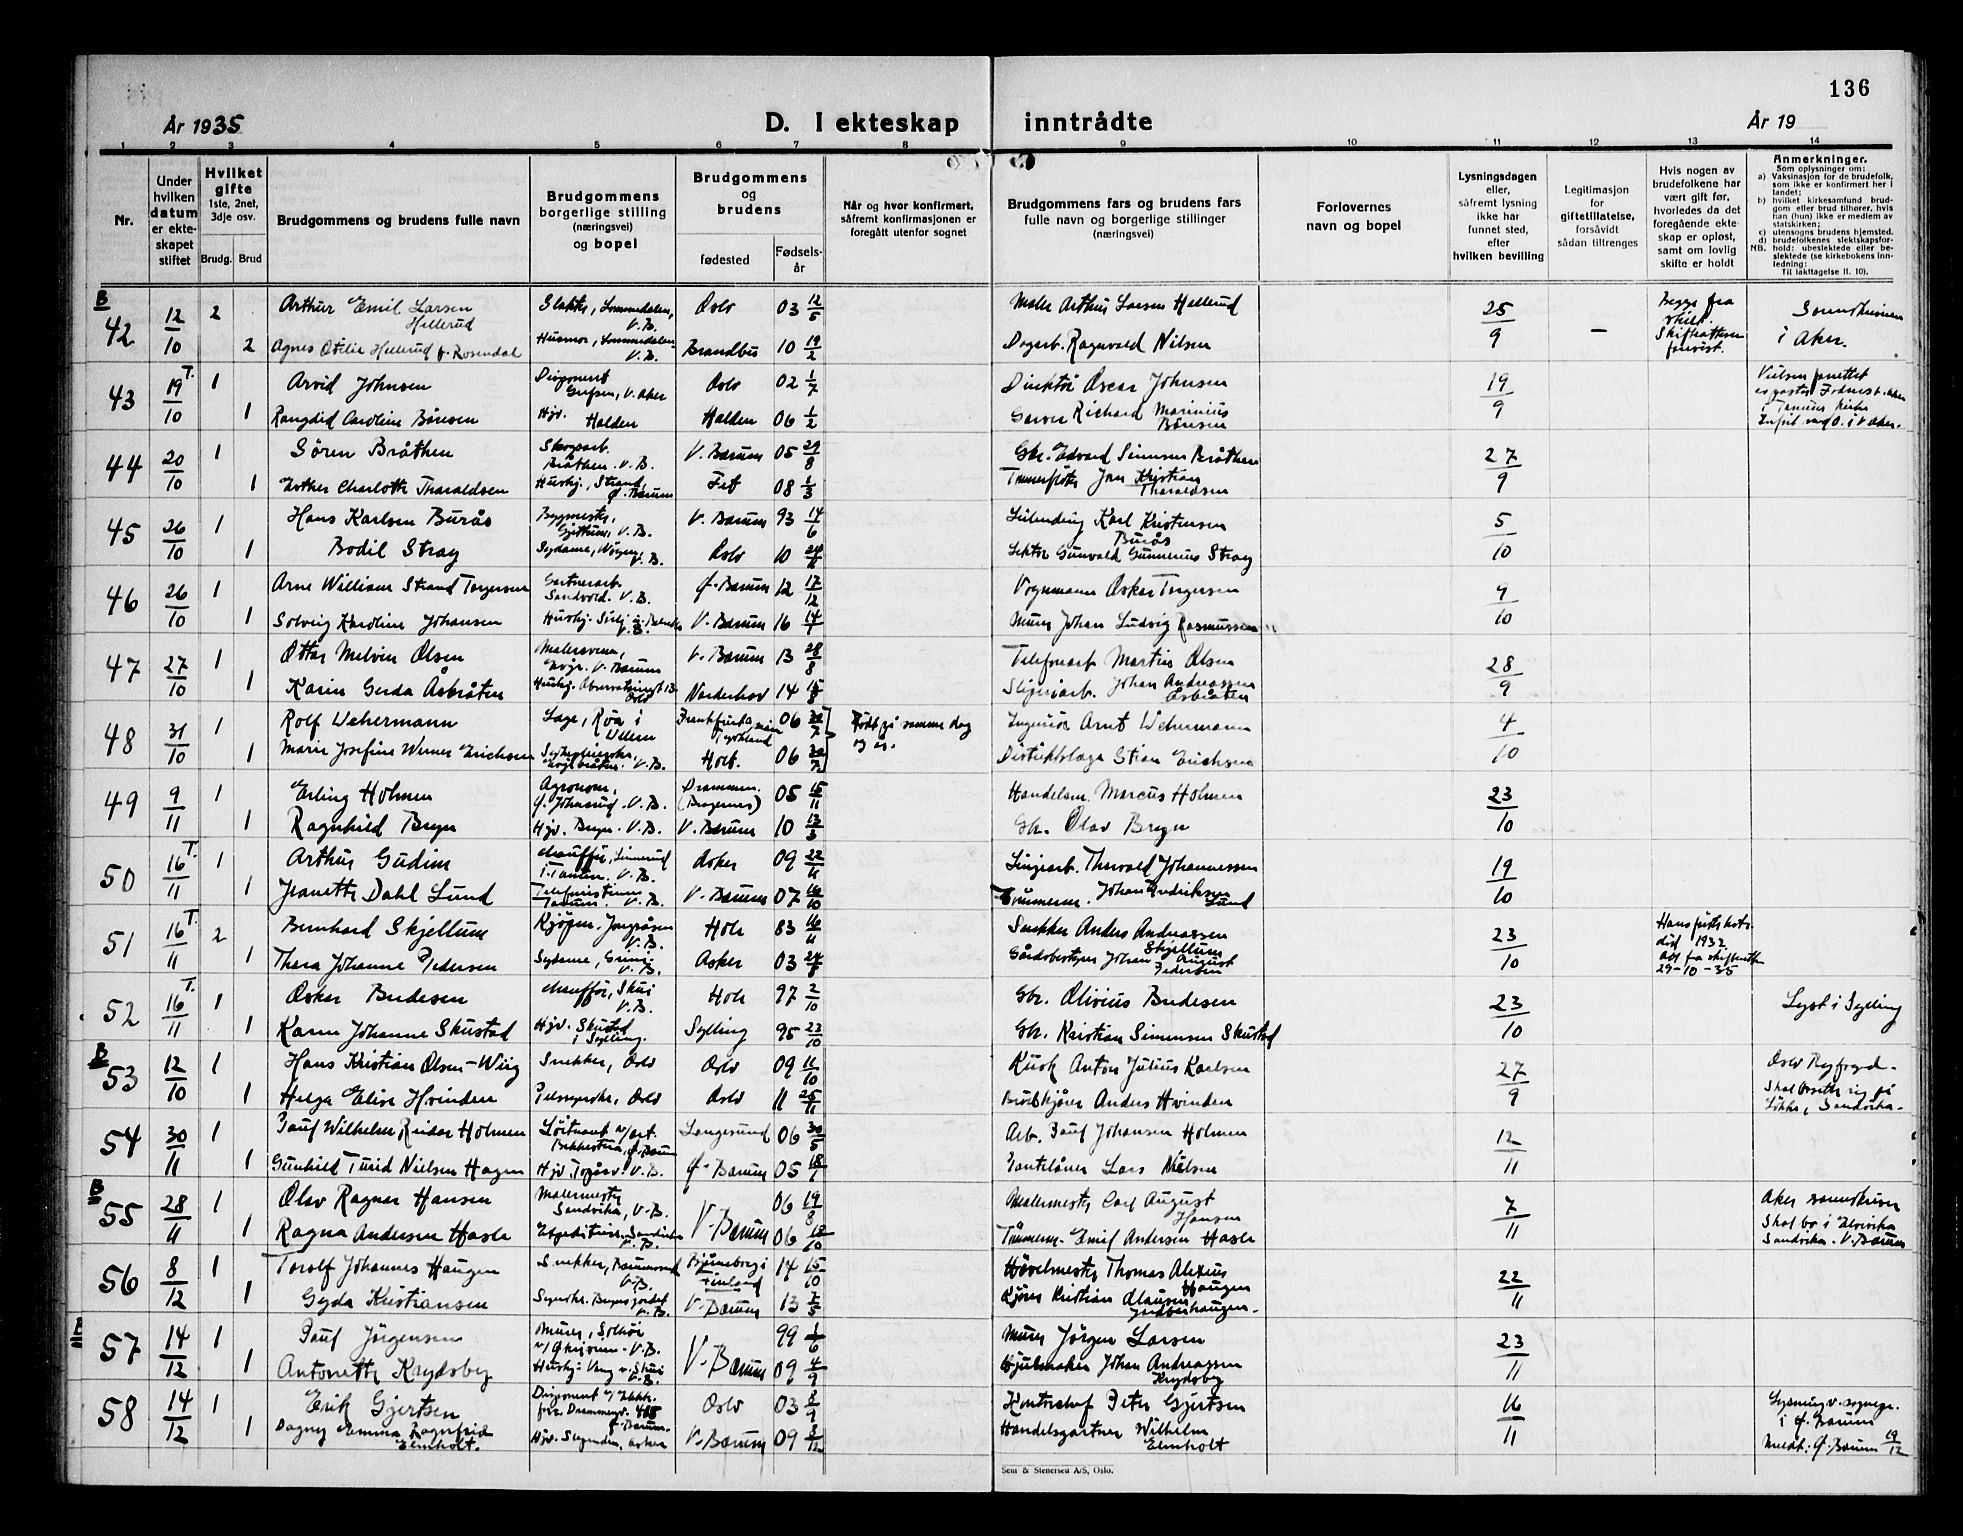 136
År 1935
D. I ekteskap inntrådte
År 19
1 2 3 4 5 6 7 8 9 10 11 12 13 14
Nr.
Under hvilken datum er ekteskapet stiftet
Hvilket gifte 1ste, 2net, 3dje osv.
Brudg. Brud
Brudgommens og brudens fulle navn
Brudgommens borgerlige stilling (næringsvei) og bopel
Brudgommens og brudens
fødested
Fødselsår
Når og hvor konfirmert, såfremt konfirmasjonen er foregått utenfor sognet
Brudgommens fars og brudens fars fulle navn og borgerlige stillinger (næringsvei)
Forlovernes navn og bopel
Lysningsdagen eller, såfremt lysning ikke har funnet sted, efter hvilken bevilling
Legitimasjon for giftetillatelse, forsåvidt sådan tiltrenges
Hvis nogen av brudefolkene har vært gift før, hvorledes da det foregående ekteskap er opløst, samt om lovlig skifte er holdt
Anmerkninger.
Som oplysninger om:
a) Vaksinasjon for de brudefolk, som ikke er konfirmert her i landet;
b) hvilket kirkesamfund brudgom eller brud tilhører, hvis han (hun) ikke er medlem av statskirken;
c) utensogns brudens hjemsted.
d) brudefolkenes slektskapsforhold: ubeslektede eller beslektede (se kirkebokens innledning:
NB.
Til iakttagelse II. 10).
B
42 12/10 2 Arthur Emil Larsen Hellerud Slakter, Lommedalen, V.B. Oslo 03 12/5 Maler Arthur Larsen Hellerud 25/9 – Begge fra skilt. Skifteattester forevist. Sorenskriveren i Aker.
2 Agnes Otilie Hellerud f. Rosendal Husmor, Lommedalen V.B. Brandbu 10 19/2 Dagarb. Ragnvald Nilsen
43 19/10 T. 1 Arvid Johnsen Disponent Grefsen, V. Aker Oslo 02 1/7 Direktør Oscar Johnsen 19/9
1 Hjv. Halden Halden 06 1/2 Garver Richard Marinius
44 20/10 1 Søren Bråthen Skogsarb. Bråthen. V.B. V. Bærum 05 29/8 Gbr. Edvard Simensen Bråthen 27/9
1 Esther Charlotte Tharaldsen Hushj., Strand, Ø. Bærum Fet 08 1/3 Tømmerfløter Jon Kristian Tharaldsen
45 26/10 1 Hans Karlsen Burås Byggmester, Gjettum, V.B. V. Bærum 93 14/6 Karl Kristensen Burås 5/10
1 Bodil Stray Sydame, V.B. Oslo 10 Lektor Gunvald Gunnerius Stray
46 26/10 1 Arne William Strand Torgersen Gartnerarb. Sandvold. V.B. Ø. Bærum 12 17/12 Vognmann Oskar Torgersen 9/10
1 Solveig Karoline Johansen Hushj. V.B. V. Bærum 16 Murer Johan Ludvig Rasmussen
47 27/10 1 Ottar Melvin Olsen Malersvenn, V. Bærum V. Bærum 13 28/8 Telefonarb. Martin Olsen 28/9
1 Karin Gerda Åsbråten Hushj. Observatoriegt 13 Oslo Norderhov 14 15/8 Sligeriarb. Johan Andreassen Åsbråten
48 31/10 1 Rolf Wehermann Læge, Røa i V. Aker Frankfurt a. main Tyskland 06 30/7 Født på samme dag og år. Ingeniør Arnt Wehermann 4/10
1 Marie Josefine Werner Erichsen V.B. Holt. 06 30/7 Distriktslæge Stian Erichsen
49 9/11 1 Erling Holmen Agronom, V.B. Drammen. (Bragernes) 05 15/11 Handelsm. Marcus Holmen 23/10
1 Ragnhild Bryn Hjv. Bryn. V.B. V. Bærum 10 13/3 Gbr. Olav Bryn
50 16/11 T. 1 Arthur Gudim chauffør, V.B. Asker 09 22/11 Thorvald Johannessen 19/10
1 Jeanette Dahl Lund Telefonistinne Tanum. V.B. V. Bærum 07 16/10 Tømmerm. Johan Fredriksen Lund
51 16/11 T. 2 Bernhard Skjellum Kjøpm. V.B. Hole 83 16/11 Snekker Anders Andreassen Skjellum 23/10 Hans første hos. død 1932 Att fra skifterett 29-10-35
1 Thora Johanne Pedersen Sydame, Grini V.B. Asker 03 Gårdsbestyrer Johan August Pedersen
52 16/11 T. 1 Oskar Budesen chauffør, Skui V.B. Hole 97 2/10 Gbr. Olivius Budesen 23/10 Lyst i Sylling
1 Karen Johanne Skustad Hjv. Skustad i Sylling. Sylling 95 23/10 Gbr. Kristian Simensen Skustad
B
53 12/10 1 Hans Kristian Olsen-Wiig Snekker, Oslo Oslo 09 11/10 Kusk Anton Julius Karlsen 27/9 Oslo Byfogd. Skal bosette sig på Løkke, Sandvika.
1 Helga Elise Hvinden Pelssyerske, Oslo Oslo 11 25/11 Brødkjører Anders Hvinden
54 30/11 1 Pauf Wilhelm Reidar Holmen Løitnant v/art. Bekkestua, Ø. Bærum Langesund 06 30/5 Arb. Pauf Johansen Holmen 12/11
1 Gunhild Turid Nielsen Hagen Hjv. V.B. Ø. Bærum 05 Pantelåner Lars Nilsen
B
55 28/11 1 Olav Ragnar Hansen Malermester Sandvika, V.B. V. Bærum 06 19/8 Malermester Carl August Hansen 7/11 Aker sorenskriver Skal bo i Sandvika. V. Bærum
1 Ragna Andersen Hasle Sandvika V.B. 06 Tømmerm. Emil Andersen Hasle
56 8/12 1 Torolf Johannes Haugen Snekker, V.B. Bjørneborg i Finland 14 15/10 Høvelmester Thomas Alexius Haugen 22/11
1 Gyda Kristiansen V.B. V. Bærum 13 7/5 Kjører Kristian Olausen
57 14/12 1 Pauf Jörgensen Murer, V.B. V. Bærum 99 1/6 Murer Jörgen Larsen 23/11
1 Antonette Krydsby Hushj. V.B. 09 4/9 Hjulmaker Johan Andreassen Krydsby
58 14/12 1 Erik Gjertsen Disponent Drammensv. Ø. Bærum. Oslo 03 8/9 Kontorchef Peter Gjertsen 16/11 Lysning v. sognepr. i Ø. Bærum Meldt: Ø. Bærum 19/12
1 Dagny Emma Ragnfrid Elmholt. Hjv. Slependen, Asker V. Bærum 09 Handelsgartner Wilhelm Elmholt
Sem & Stenersen A/S, Oslo.